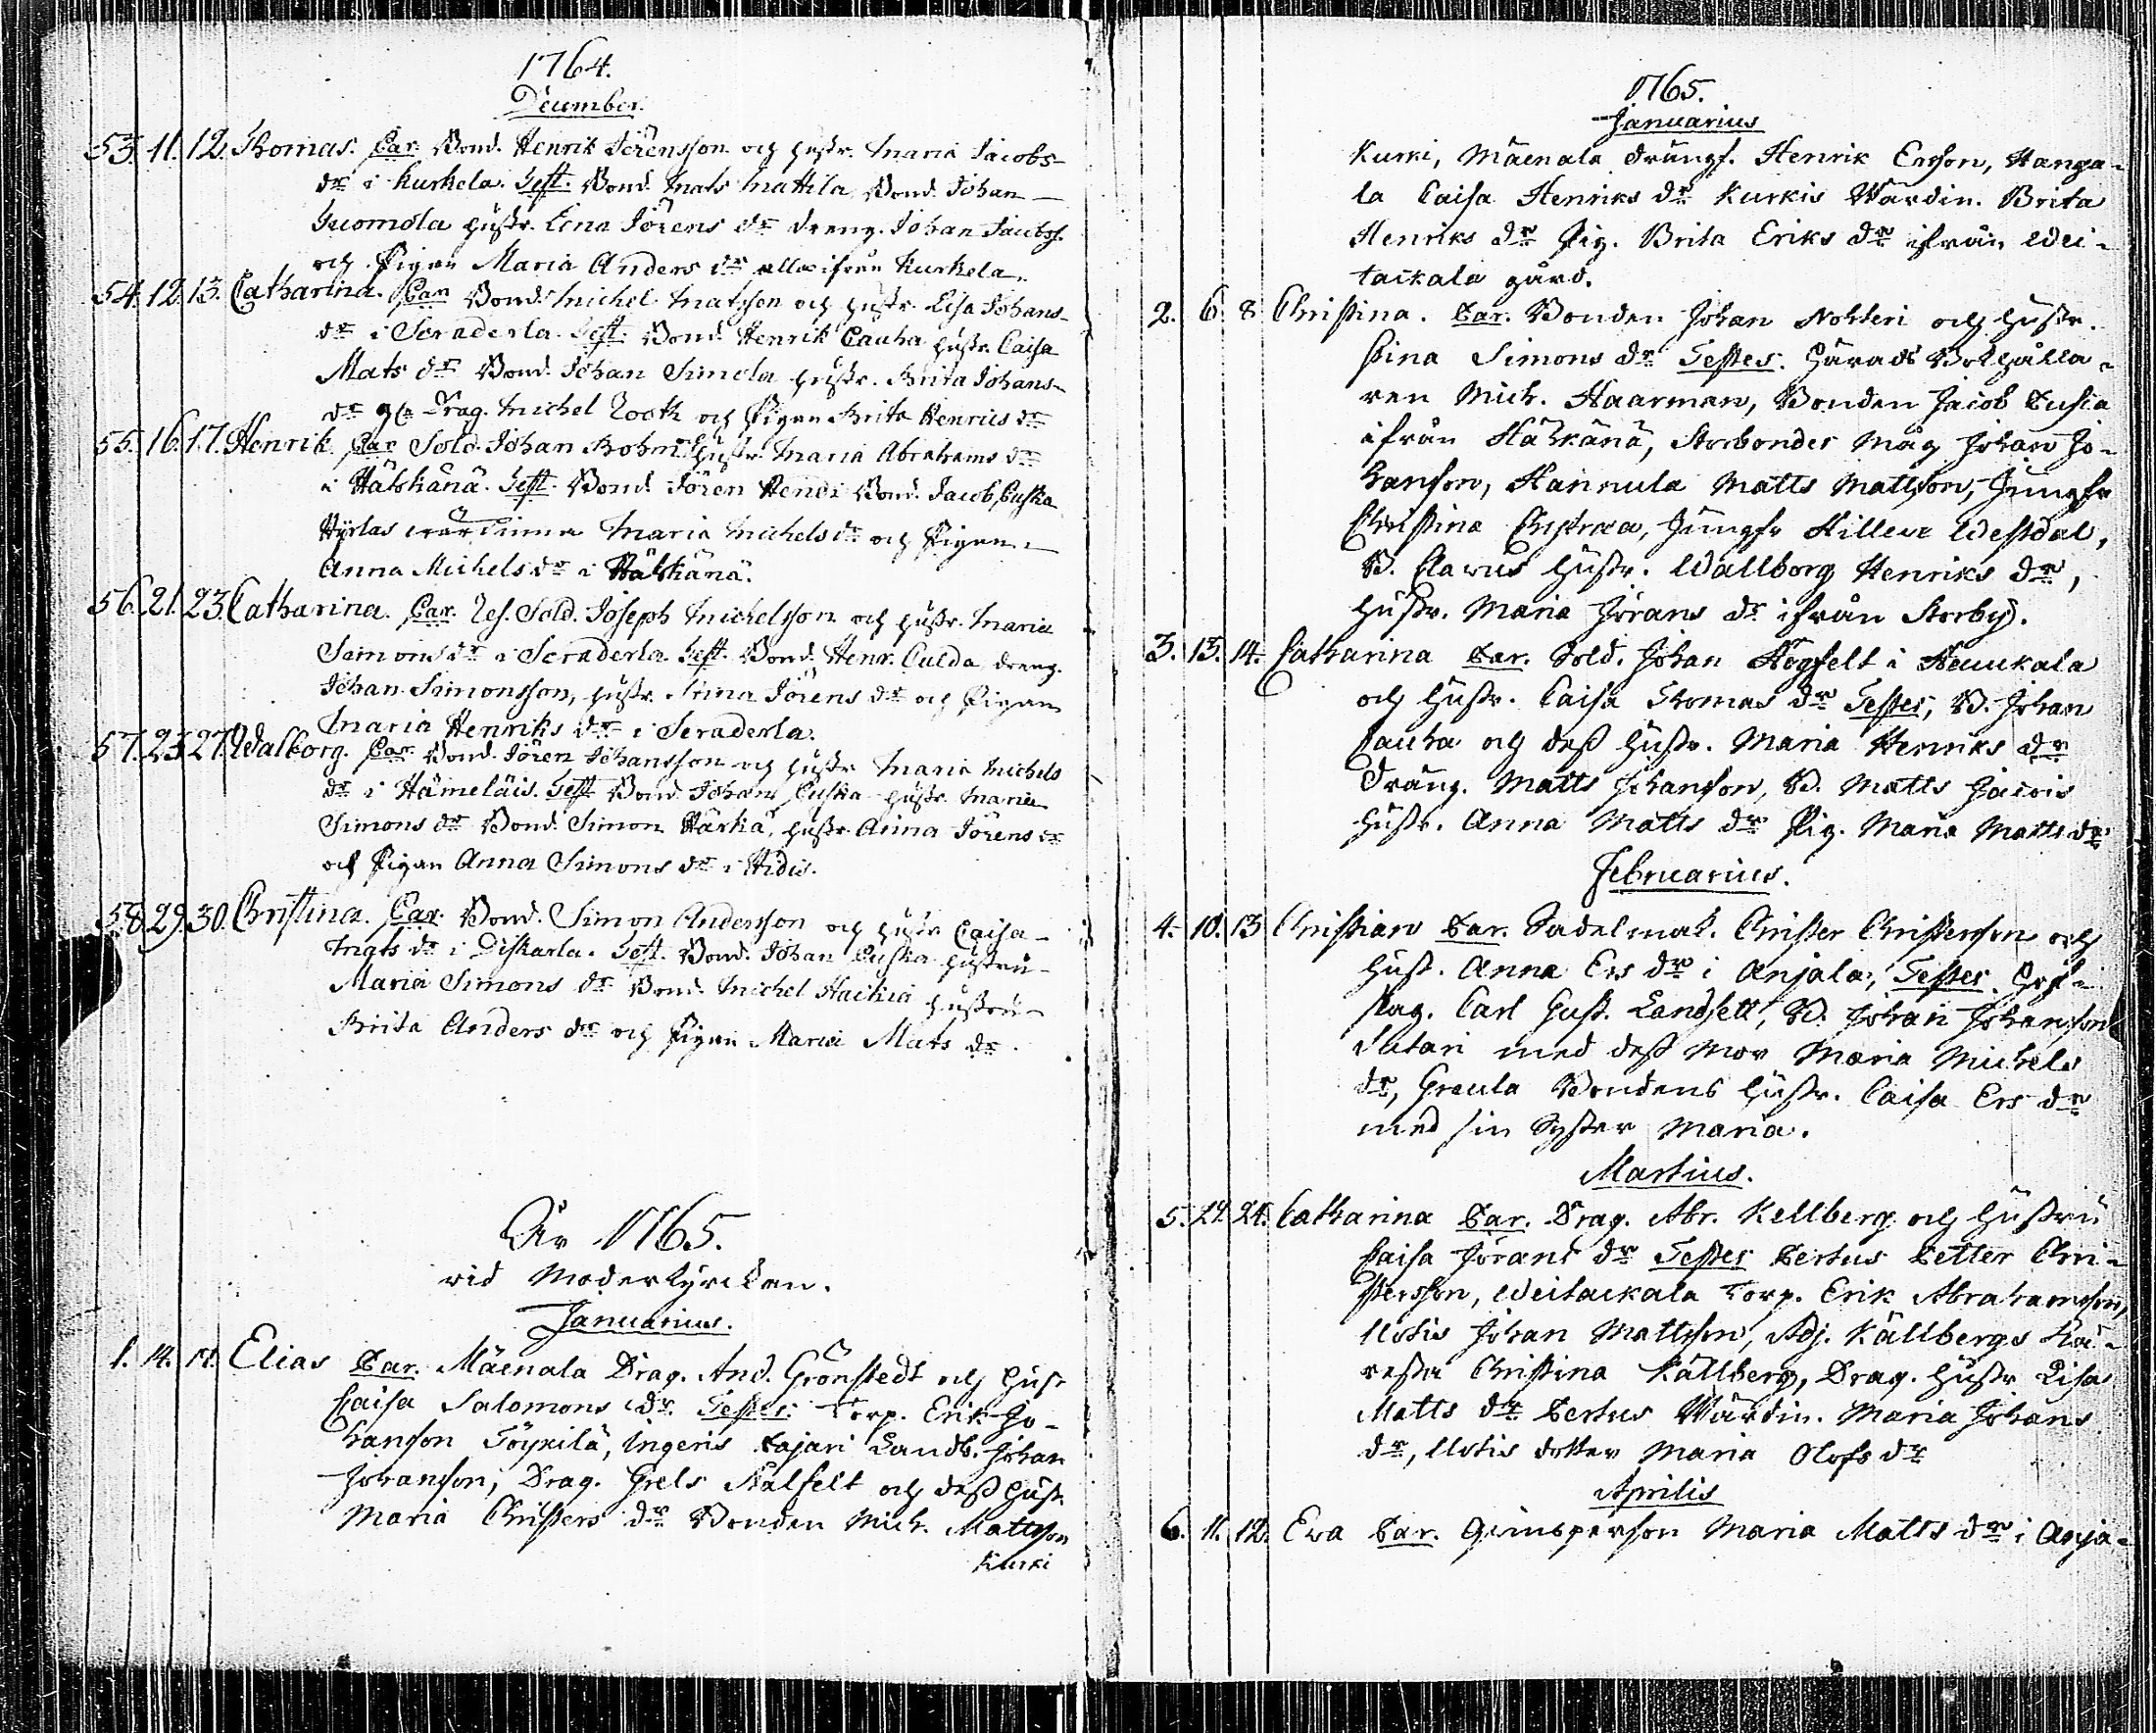 1764.
December.
53. 11. 12. Thomas. Par. Bond. Henrik Jörensson och hustr. Maria Jacobs
dr i Kurkela. Test. Bond. Mats Mattila Bond. Johan
Juomola hustr. Lena Jörens dr dreng. Johan Jacobss.
och Pigan Maria Anders dr alla ifrån Kurkela.
54. 12. 13. Catharina. Par. Bond. Michel Matsson och hustr. Lisa Johans
dr i Seraderla. Test. Bond. Henrik Cauha hustr. Caisa
Mats dr Bond. Johan Simola hustr. Brita Johans
dr Drag. Michel Rooth och Pigan Brita Henrics dr
55. 16. 17. Henrik Par. Sold. Johan Bohm hustr. Maria Abrahams dr
i Hätskänä. Test. Bond. Jören Hendi Bond. Jacob Puska
Hyrlas wärdinna Maria Michels dr och Pigan
Anna Michels dr i Hätskänä.
56. 21. 23. Catharina. Par. Res. Sold. Joseph Michelsson och hustr. Maria
Simons dr i Seraderla. Test. Bond. Henr. Culda, dreng.
Johan Simonsson, hustr. Anna Jörens dr och Pigan
Maria Henriks dr i Seraderla.
57. 25. 27. Walborg. Par. Bond. Jören Johansson och hustr. Maria Michels
dr i Hämeläis. Test. Bond. Johan Puska hustr. Maria
Simons dr Bond. Simon Härkä, hustr. Anna Jörens dr
och Pigan Anna Simons dr i Hidis.
58. 29. 30. Christina. Par. Bond. Simon Andersson och hustr. Caisa
Mats dr i Diskarla. Test. Bond. Johan Puska hustru
Maria Simons dr Bond. Michel Hackia hustru
Brita Anders dr och Pigan Maria Mats dr.
År 1765.
vid Moderkyrckan.
Januarius.
1. 14. 17. Elias Par. Mäenala Drag. And. Grönstedt och hust
Caisa Salomons dr. Testes. Torp. Erik Jo-
hanson Töyrilä, Ingeris Pajari Landb. Johan
Johanson, Drag. Grels Stalfelt och dess hust.
Maria Christers dr Bonden Mich. Mattsson
Kurki
1765.
Januarius
Kurki, Mäenala drängs. Henrik Ersson, Hanga-
la Caisa Henriks dr Kurkis Wärdin. Brita
Henriks dr Pig. Brita Eriks dr ifrån Wei-
tackala gård.
2. 6. 8. Christina. Par. Bonden Johan Nohteri och hustr.
Stina Simons dr Testes. Härads Bokhålla-
ren Mich. Haarman, Bonden Jacob Puska
ifrån Häskänä, Storbondes måg Johan Jo-
hanson, Hannula Matts Mattsson, Jungfr
Christina Chystraea, Jungfr Hillevi Westdal,
B. Clarus hustr. Wallborg Henriks dr,
hustr. Maria Jörans dr ifrån Storby.
3. 13. 14. Catharina Par. Sold. Johan Hogfelt i Haukala
och hustr. Caisa Thomas dr Testes, B. Johan
Cauha och dess hustr. Maria Henriks dr
dräng. Matts Johanson, B. Matts Jacois
hustr. Anna Matts dr Pig. Maria Matts dr
Februarius.
4. 10. 13 Christian Par. Sadelmak. Christer Christerson och
hust. Anna Ers dr i Anjala, Testes.
Carl Gust. Landzett, B. Johan Johanson
Sutari med dess mor Maria Michels
dr, Greula Bondens hustr. Caisa Ers dr
med sin Syster Maria.
Martius.
5. 24. 24. Catharina Par. Drag. Abr. Kellberg och hustru
Caisa Jörans dr Testes Pertus Petter Chri-
stersson, Weitackala Torp. Erik Abrahamsson,
Uotis Johan Mattsson, Adj. Källbergs kä-
resta Christina Källberg, Drag. hustr Lisa
Matts dr Pertus Wärdin. Maria Johans
dr, Uotis dotter Maria Olofs dr
Aprilis
6. 11. 12. Eva Par. Qvinsperson Maria Matts dr i Anja-